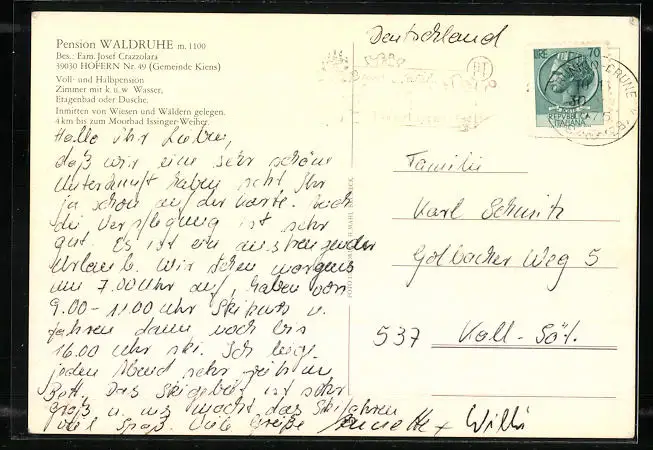 Pension WALDRUHE m. 1100
Bes.: Fam. Josef Crazzolara
39030 HOFERN Nr. 49 (Gemeinde Kiens)
Voll- und Halbpension
Zimmer mit k. u. w. Wasser,
Etagenbad oder Dusche.
Inmitten von Wiesen und Wäldern gelegen.
4 km bis zum Moorbad Issinger-Weiher.
Hallo ihr Lieben,
daß wir eine sehr schöne
Unterkunft haben seht Ihr
ja schon auf der Karte. Auch
die Verpflegung ist sehr
gut. Es ist ein anstrengender
Urlaub. Wir stehen morgens
um 7.00 Uhr auf, haben von
9.00 - 11.00 Uhr Skikurs u.
fahren dann noch bis
16.00 Uhr Ski. Ich liege
jeden Abend sehr zeitig im
Bett. Das Skigebiet ist sehr
groß u. uns macht das Skifahren
viel Spaß. Viele Grüße Annette + Willi
Deutschland
LIRE 70
REPVBBLICA
ITALIANA
Familie
Karl Schmitz
Golbacher Weg 5
537 Kall - Söt.